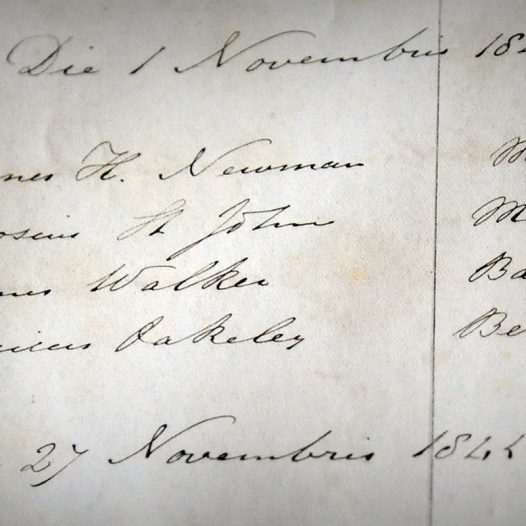 Die 1 Novembris 184
nes H. Newman M
osius St John M
nes Walker Ba
icus Oakeley Be
27 Novembris 184